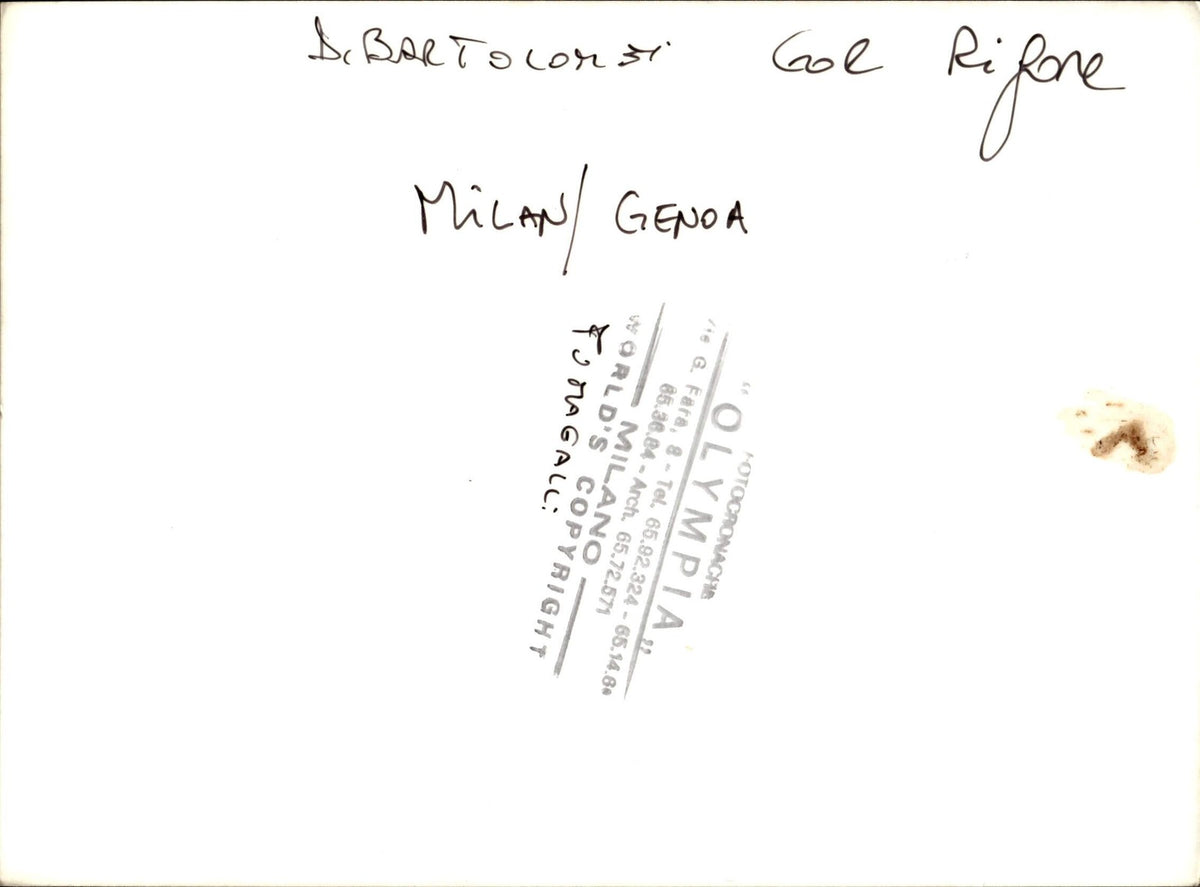 DiBARTOLOMEi Gol Rigore
MiLAN/ GENOA
FOTOCRONACHE
"OLYMPIA"
Via G. Fara, 8 - Tel. 65.92.324 - 65.14.8
65.36.84 - Arch. 65.72.571
MILANO
WORLD'S COPYRIGHT
FUMAGALLi